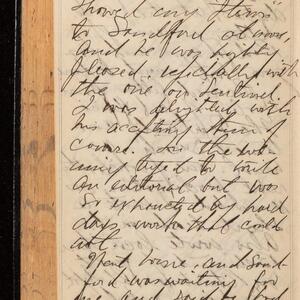 Showed my items
to Sandford at noon
and he was highly
pleased, especially with
the one on Sentinel.
I was delighted with
his accepting them of
course. In the eve-
ning tried to write
an editorial but was
so exhausted by hard
days work that could
not.
Went home and Sand-
ford was waiting for
me and